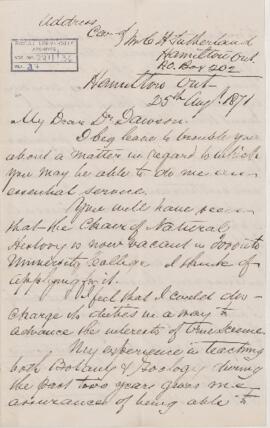 Address
Care of
Mr C H Sutherland
Hamilton Ont.
P.O. Box 202
McGILL UNIVERSITY
ARCHIVES
ACC. NO.
REF.
Hamilton Ont.
25th Augt. 1871
My Dear Dr Dawson
I beg leave to trouble you
about a matter in regard to which
you may be able to do me an
essential service.
You will have seen
that the Chair of Natural
History is now vacant in Toronto
University College I think of
applying for it.
I feel that I could dis-
charge its duties in a way to
advance the interests of true science
My experience in teaching
both Botany & Zoology during
the past two years gives me
assurances of being able to